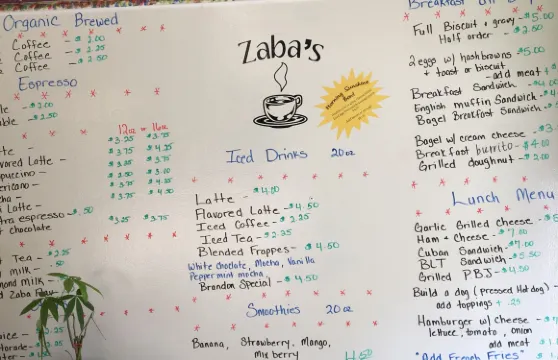 Organic Brewed
Coffee - $2.00
Coffee - $2.25
Coffee - $2.50
Espresso
- $2.00
- $2.50
12oz - 16oz
- $3.25 $3.75
Latte - $3.75 $4.25
- $3.25 $3.75
- $2.50 $3.00
- $3.75 $4.25
- $3.75 $4.50
Latte -
espresso - .50
Chocolate $3.25 $3.75
Tea - $2.25
milk - .50
Milk -
Zaba
Zaba's
Morning Sunshine
Bowl
Iced Drinks 20oz
Latte - $4.00
Flavored Latte - $4.50
Iced Coffee - $2.25
Iced Tea - $2.25
Blended Frappes - $4.50
White Choclate, Mocha, Vanilla
Peppermint mocha
Brandon Special - $4.50
Smoothies 20oz
Banana, Strawberry, Mango,
Mix berry
4.50
Breakfast
Full Biscuit + gravy - $5.00
Half order - $2.50
2 eggs w/ hashbrowns $5.00
+ toast or biscuit
- add meat +
Breakfast Sandwich -
English muffin Sandwich -
Bagel Breakfast Sandwich -
Bagel w/ cream cheese - $3
Breakfast burrito - $4.00
Grilled doughnut - $2.00
Lunch Menu
Garlic Grilled cheese - $
Ham + Cheese - $7.00
Cuban Sandwich - $7.00
BLT Sandwich - $5.50
Grilled PBJ - $4.50
Build a dog (pressed Hot dog) -
add toppings + .25
Hamburger w/ cheese -
lettuce, tomato, onion
add meat
"Add French Fries"